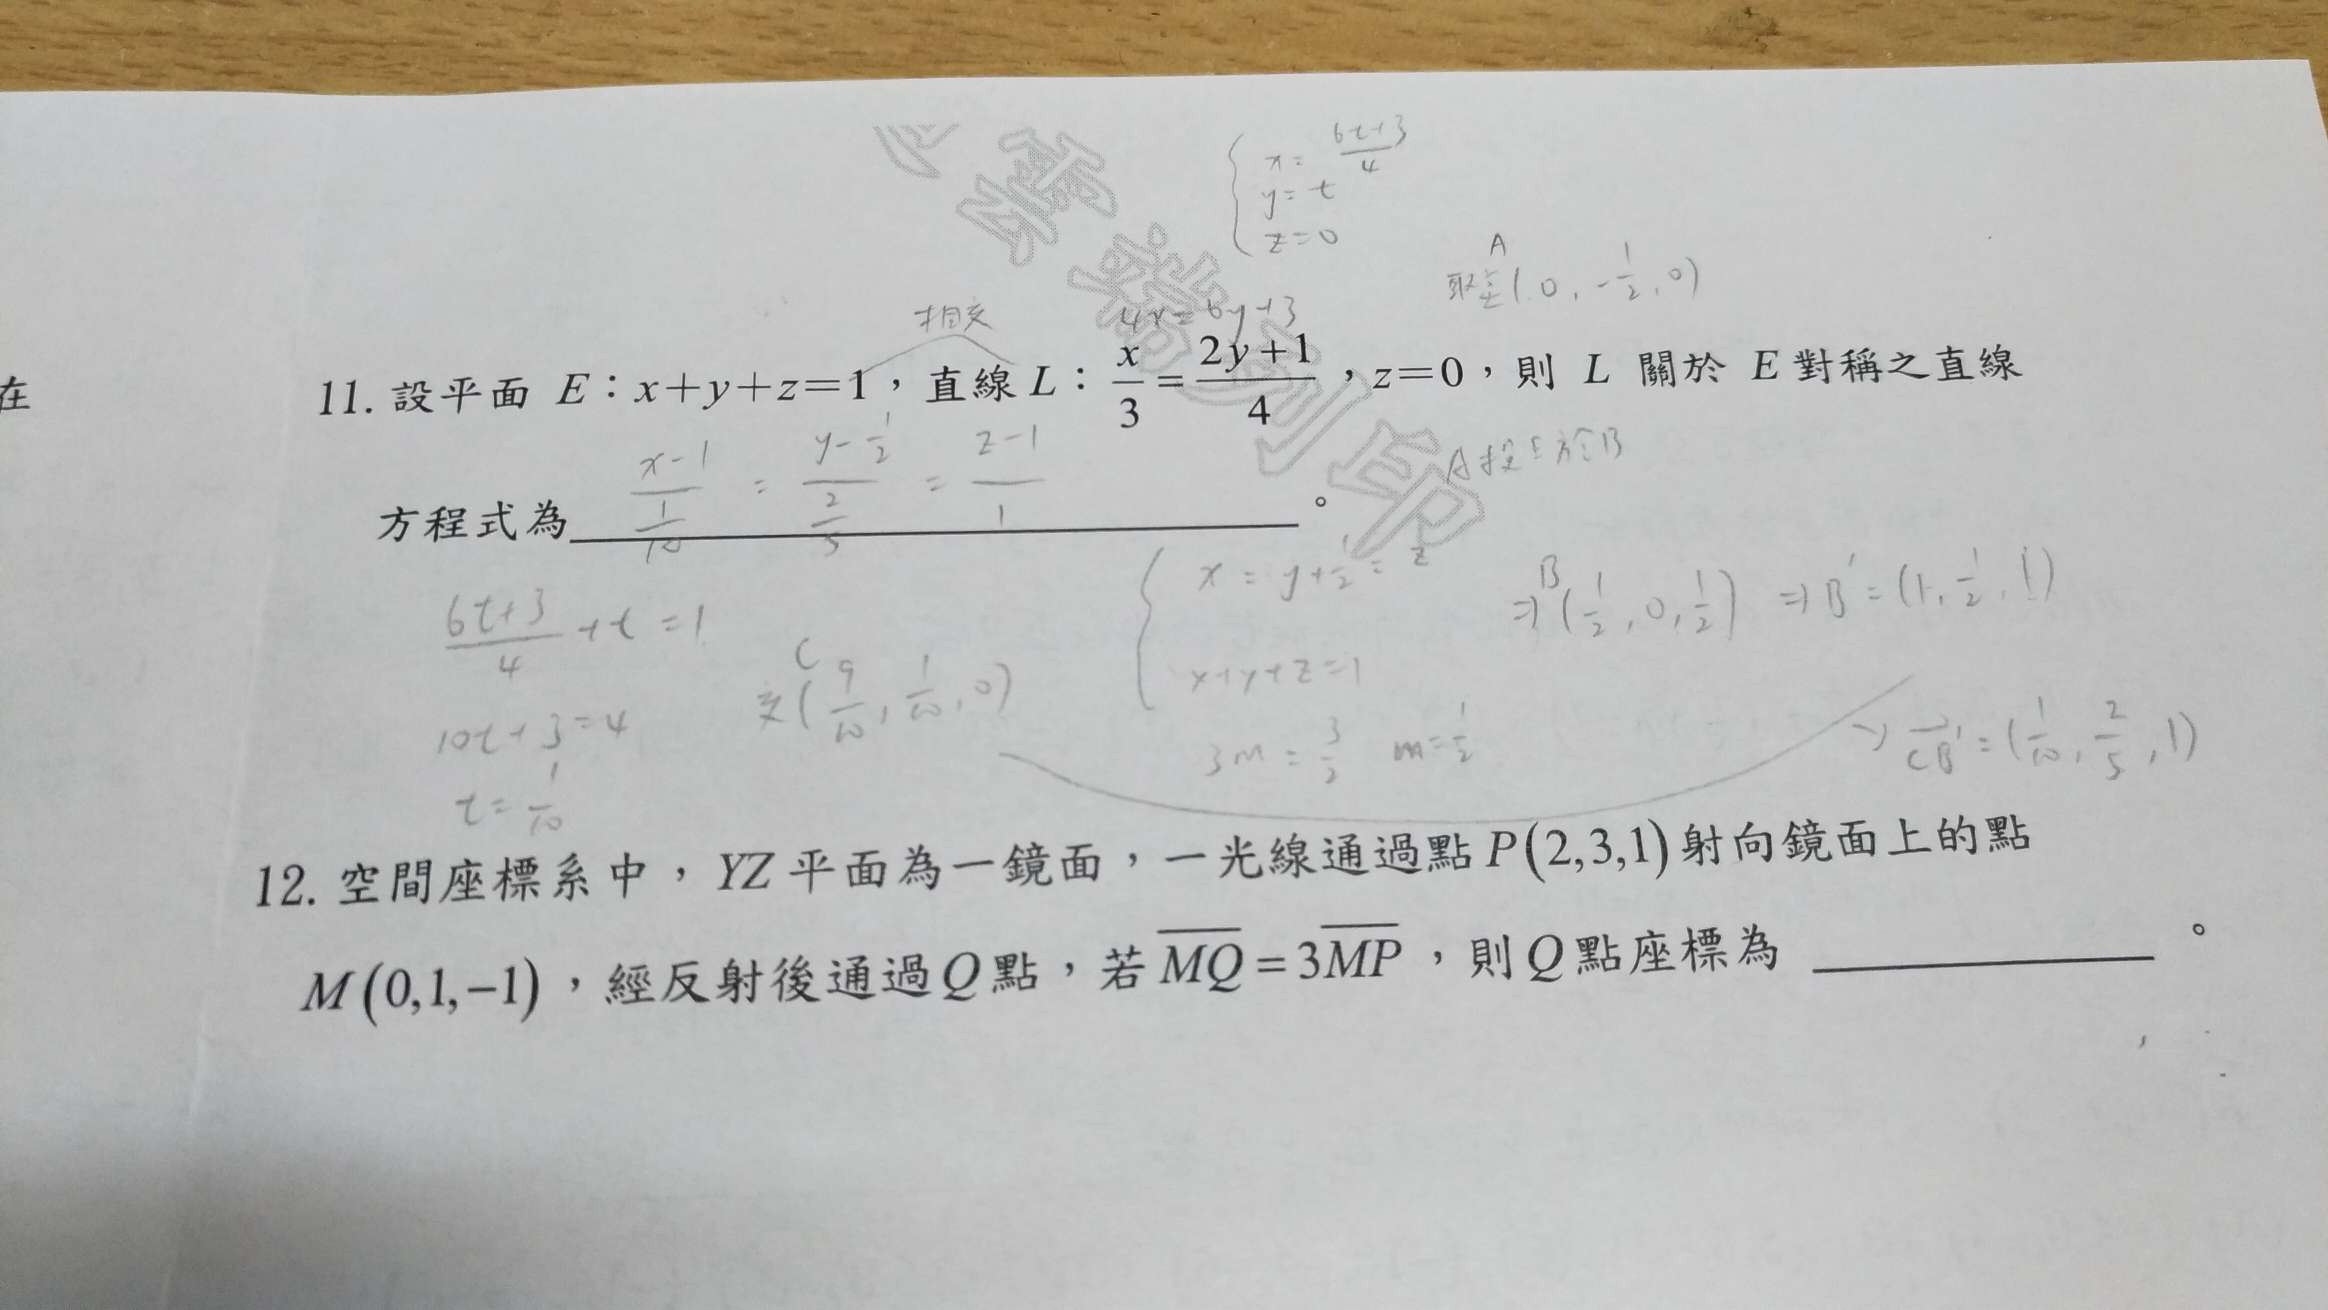 x = (6t+3)/4
y = t
z = 0
A
取點(0, -1/2, 0)
相交
4x = 6y+3
在
11. 設平面 E：x+y+z=1，直線 L： x/3 = (2y+1)/4，z=0，則 L 關於 E 對稱之直線
方程式為
(x-1)/(1/10) = (y-1/2)/(2/5) = (z-1)/1
。
(6t+3)/4 + t = 1
10t+3=4
t = 1/10
C
交(9/10, 1/10, 0)
x = y+1/2 = z
x+y+z=1
3m = 3/2 m = 1/2
B
⇒(1/2, 0, 1/2) ⇒ B' = (1, 1/2, 1)
⇒ CB' = (1/10, 2/5, 1)
12. 空間座標系中，YZ 平面為一鏡面，一光線通過點 P(2,3,1) 射向鏡面上的點
M(0,1,−1)，經反射後通過 Q 點，若 MQ = 3MP，則 Q 點座標為 。